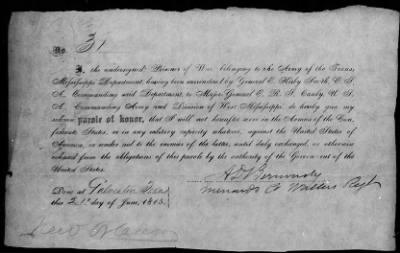 No. 31
I, the undersigned Prisoner of War, belonging to the Army of the Trans-
Mississippi Department, having been surrendered by General E. Kirby Smith, C. S.
A., Commanding said Department, to Major General E. R. S. Canby, U. S.
A., Commanding Army and Division of West Mississippi, do hereby give my
solemn parole of honor, that I will not hereafter serve in the Armies of the Con-
federate States, or in any military capacity whatever, against the United States of
America, or render aid to the enemies of the latter, until duly exchanged, or otherwise
released from the obligations of this parole by the authority of the Government of the
United States.
Done at Galveston Texas
this 21st day of June, 1865.
Menard Co Wallers Regt